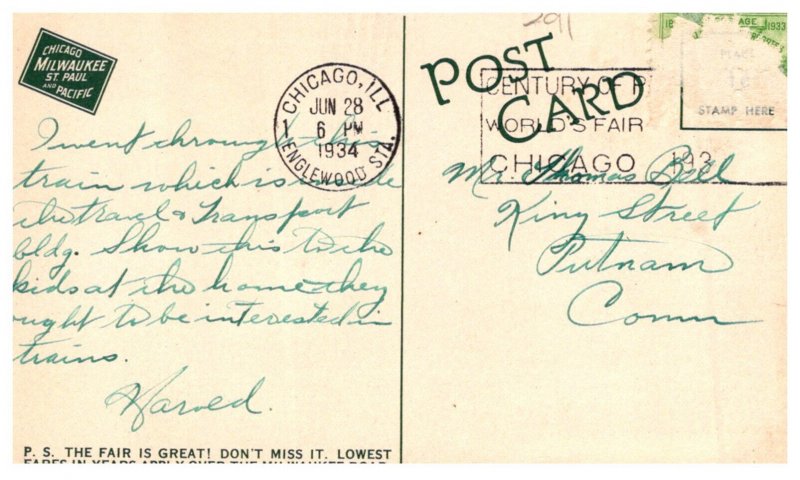 CHICAGO
MILWAUKEE
ST. PAUL
AND PACIFIC
I went through this
train which is inside
the travel & Transport
bldg. Show this to the
kids at the home they
ought to be interested in
trains.
Harold.
P. S. THE FAIR IS GREAT! DON'T MISS IT. LOWEST
FARES IN YEARS APPLY OVER THE MILWAUKEE ROAD
CHICAGO, ILL
JUN 28
1 6 PM
1934
ENGLEWOOD STA.
291
POST
CARD
CENTURY OF P
WORLD'S FAIR
CHICAGO 193
AGE 1933
PLACE
1c
STAMP HERE
Mr. Thomas
King Street
Putnam
Conn